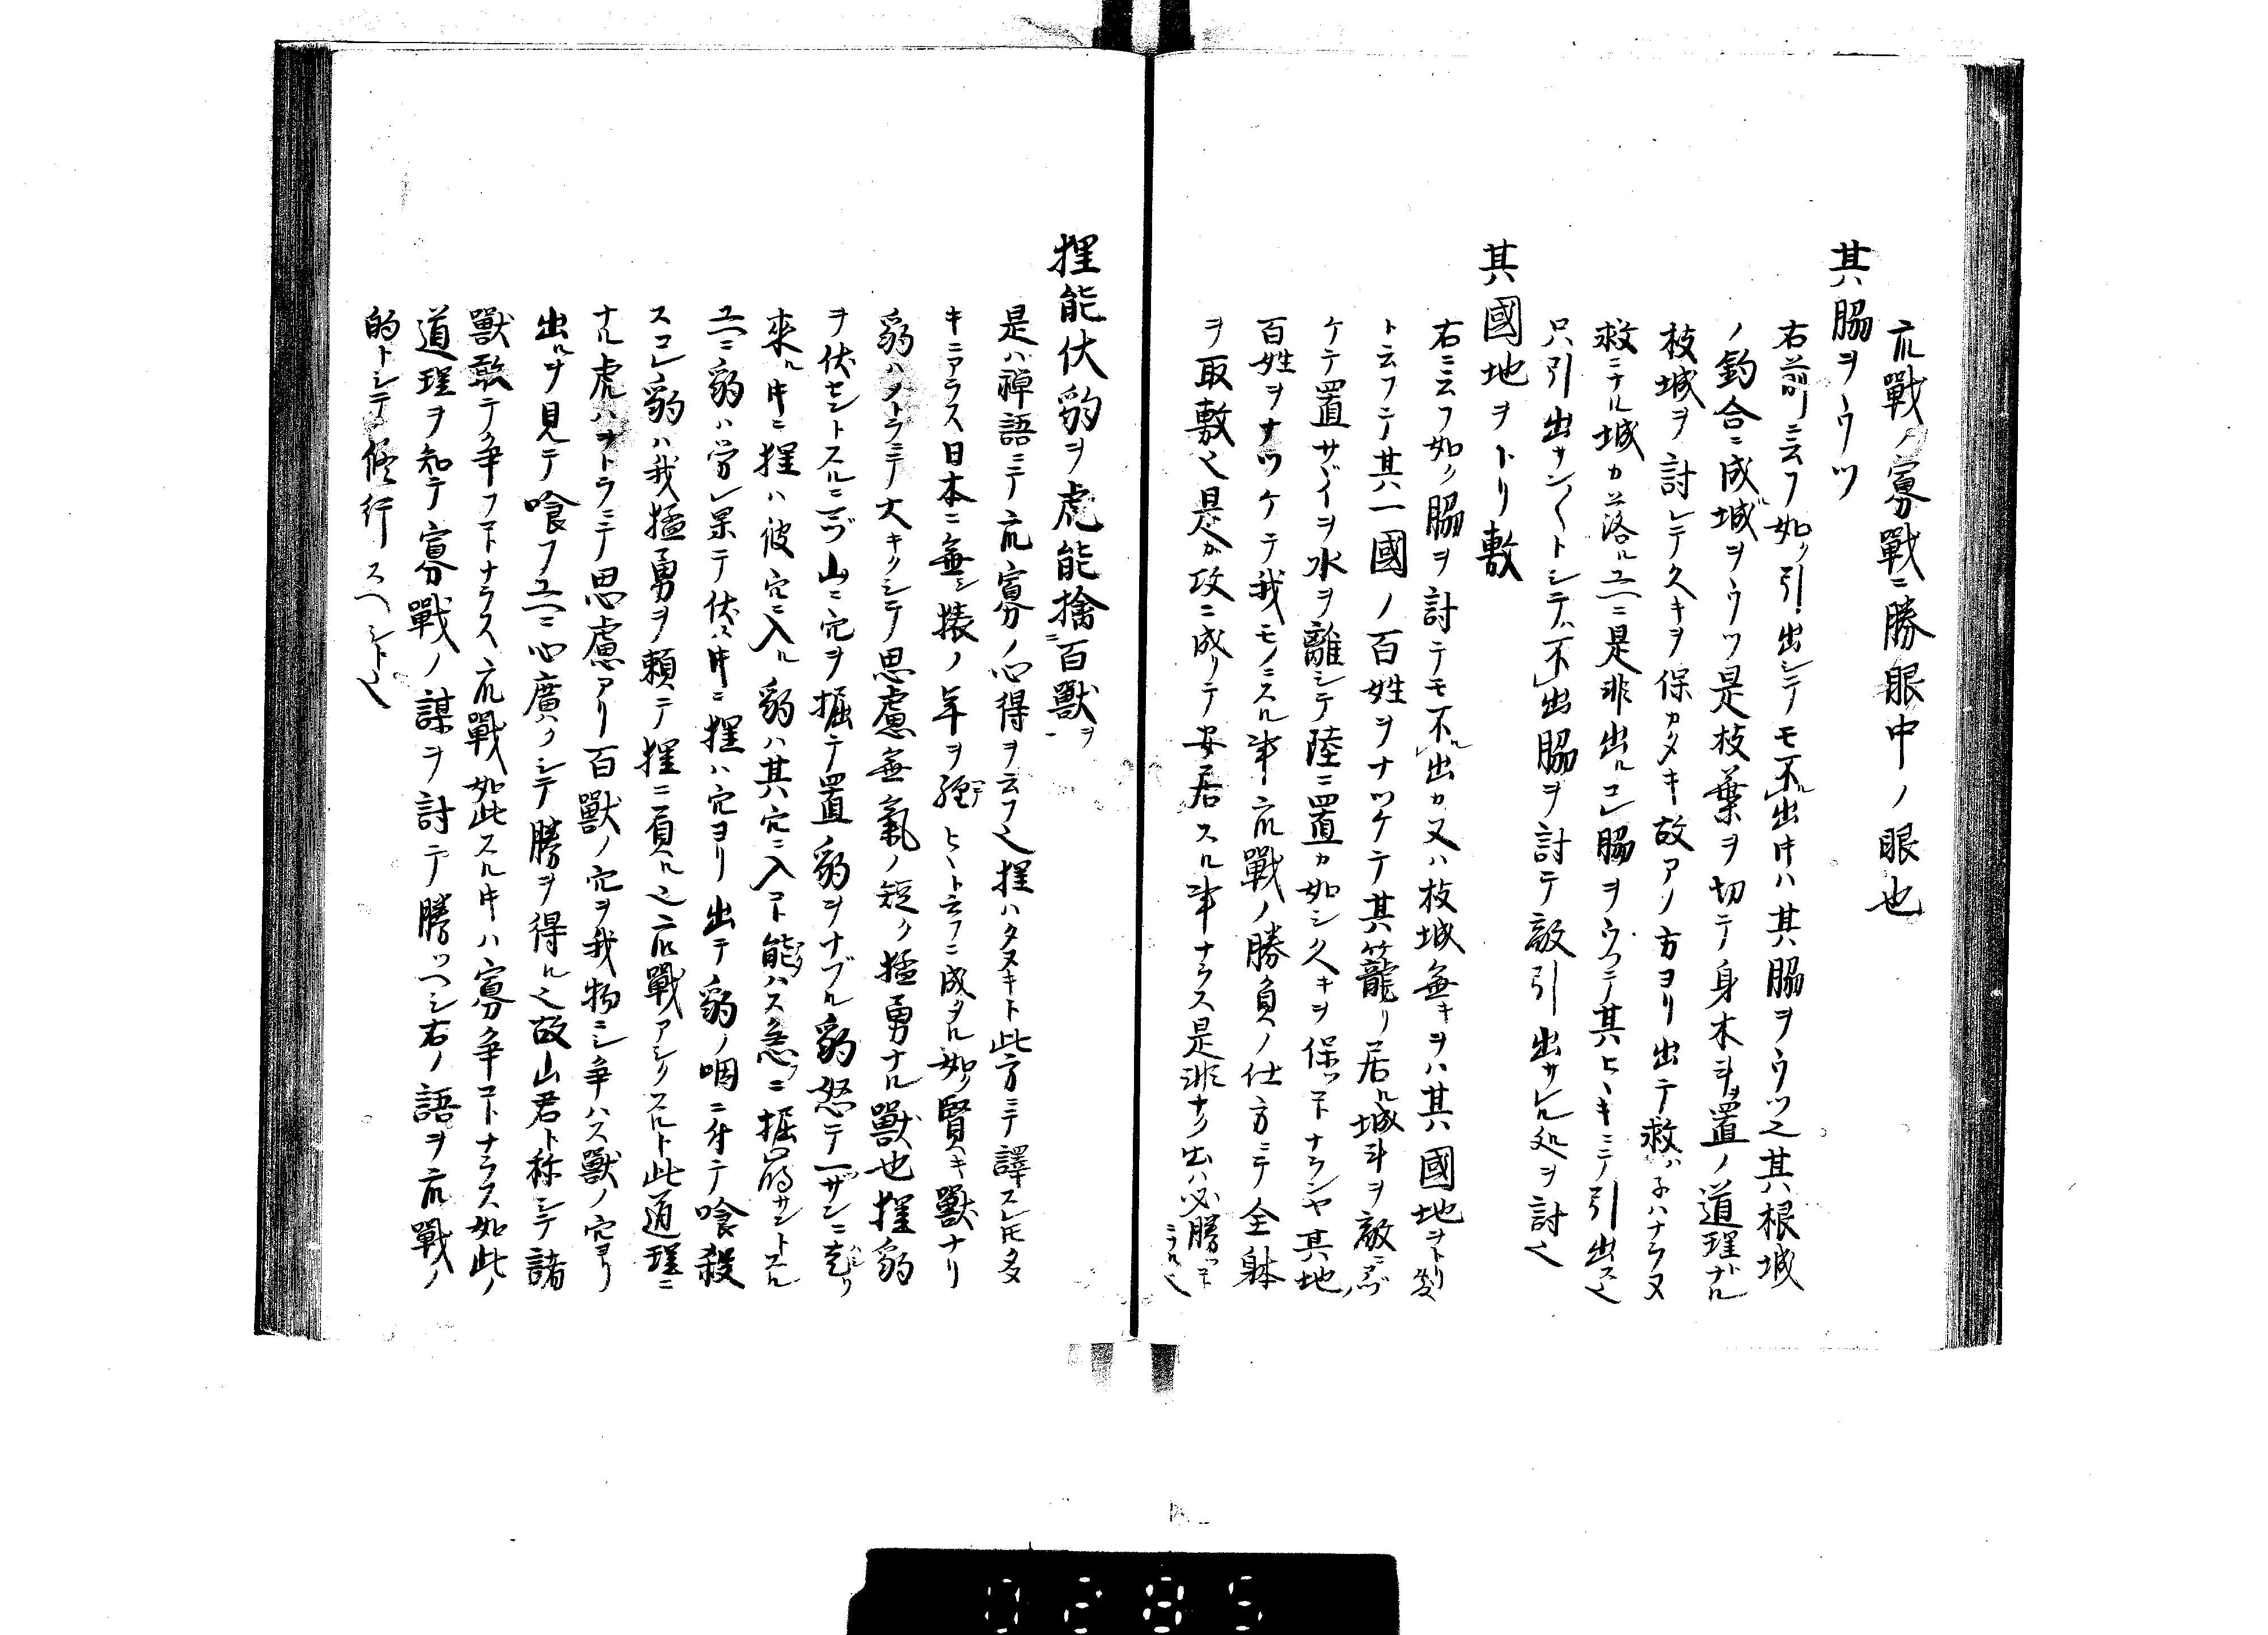 亢戰ノ寡戰ニ勝眼中ノ眼也
其脇ヲウツ
右前ニ云フ如ク引出シテモ不出片ハ其脇ヲウツ也其根城
ノ釣合ニ成城ヲウツ是枝葉ヲ切テ身木ヲ置ノ道理ナル
枝城ヲ討レテ久キヲ保カタキ故アノ方ヨリ出テ救ハ子ハナラヌ
救ニナル城カ落ルユヘニ是非出ルコレ脇ヲウツテ其ヒヽキニテ引出ス也
只引出サン〱トシテハ不出脇ヲ討テ敵引出サレル処ヲ討也
其國地ヲトリ敷
右ニ云フ如ク脇ヲ討テモ不出カ又ハ枝城無キヲハ其國地ヲトリ敷
ト云フテ其一國ノ百姓ヲナツケテ其籠リ居ル城斗ヲ敵ニアヅ
ケテ置サヾイヲ水ヲ離シテ陸ニ置カ如シ久キヲ保ツコトナランヤ其地ノ
百姓ヲナツケテ我モノニスル事亢戰ノ勝負ノ仕方ニテ全躰
ヲ取敷也是カ攻ニ成リテ安居スル事ナラス是非ナク出ハ必勝ツコトニナル也
狸能伏豹ヲ虎能擒百獸ヲ
是ハ禅語ニテ亢寡ノ心得ヲ云フ也狸ハタヌキト此方ニテ譯スレ𪜈タヌ
キニアラス日本ニ無シ猿ノ年ヲ經テヒヽト云フニ成タル如ク賢キ獸ナリ
豹ハ虎ニ似テ大キクシテ思慮無氣ノ短ク猛勇ナル獸也狸豹
ヲ伏セントスルニマヅ山ニ穴ヲ掘テ置ノ豹ヲナブル豹怒テ一ザンニ走リ
來ル片ニ狸ハ彼穴ニ入ル豹ハ其穴ニ入コト能ハス急ニ掘崩サントスル
ユヘニ豹ハ労レ果テ伏ス片ニ狸ハ穴ヨリ出テ豹ノ咽ニ付テ喰殺
スコレ豹ハ我猛勇ヲ頼テ狸ニ負ル也亢戰アシクスルト此道理ニ
ナル虎ハヲトラニテ思慮アリ百獸ノ穴ヲ我物ニシ争ハス獸ノ穴ヨリ
出ルヲ見テ喰フユヘニ心廣クシテ勝ヲ得ル也故山君ト称シテ諸
獸敢テ争フコトナラス亢戰如此スル片ハ寡争コトナラス如此ノ
道理ヲ知テ寡戰ノ謀ヲ討テ勝ツヘシ右ノ語ヲ亢戰ノ
的トシテ修行スヘシト也
0285